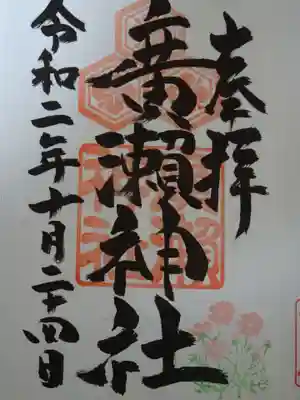 奉拝
廣瀬神社
令和二年十月二十四日